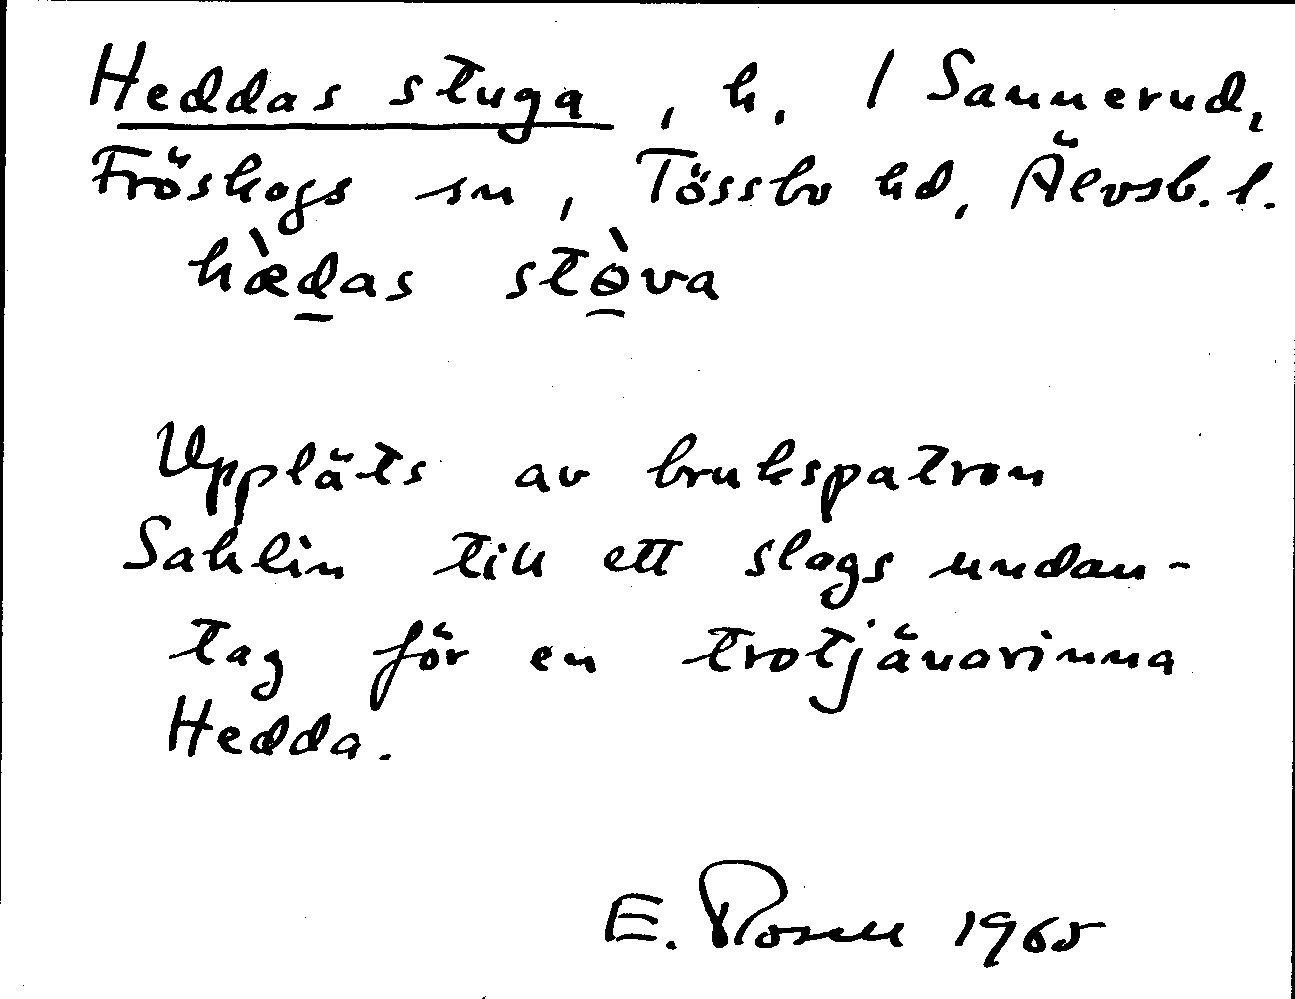 Heddas stuga, h. / Sannerud,
Fröskogs sn, Tössbo hd, Älvsb. l.
hæ̀das stòva
Uppläts av brukspatron
Sahlin till ett slags undan-
tag för en trotjänarinna
Hedda.
E. Rosell 1965